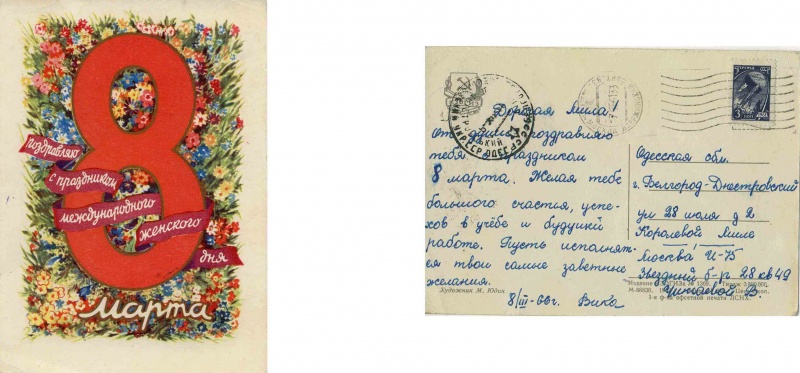 Поздравляю
с праздником
международного
женского
дня
8
Марта
Дорогая Мила!
От души поздравляю
тебя с праздником
8 марта. Желая тебе
большого счастья, успе-
хов в учёбе и будущей
работе. Пусть исполнят-
ся твои самые заветные
желания.
8/III-66г. Вика
Художник М. Юдин
Одесская обл.
г. Белгород-Днестровский
ул 28 июля д 2
Королевой Миле
Москва И-75
Звездный б-р 28 кв 49
В.
3-я ф-ка офсетной печати ЛСНХ.